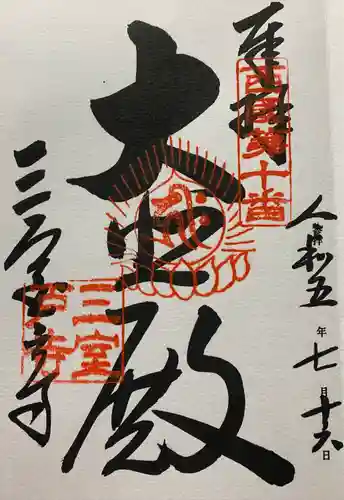 奉拝
西国第十番
大悲殿
三室戸寺
三室
戸寺
令和五年七月十六日